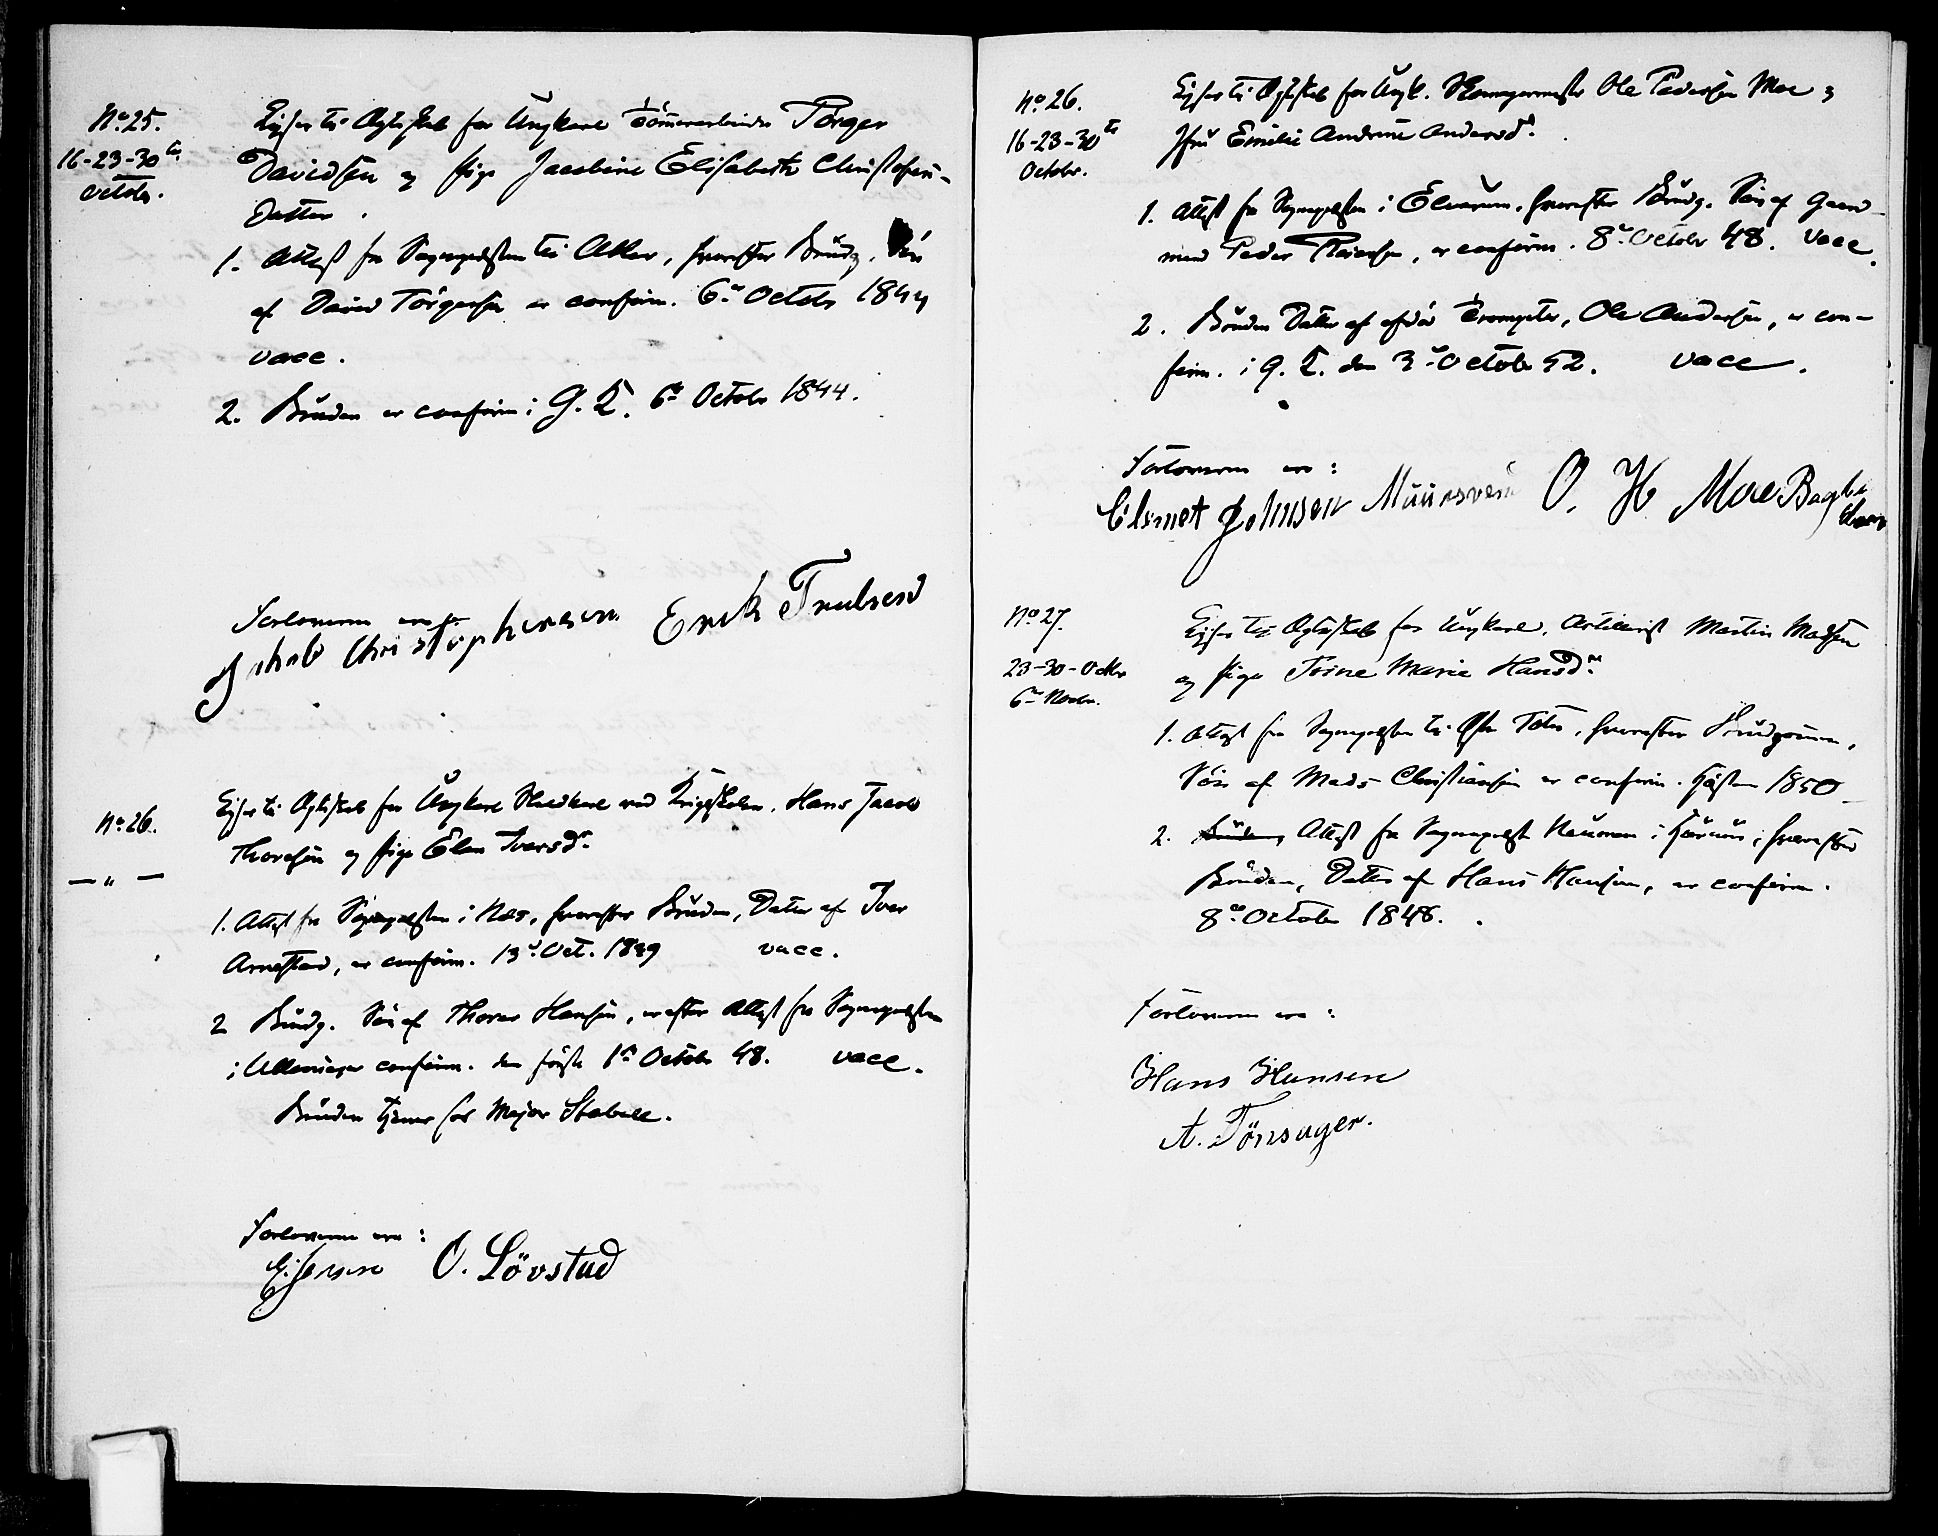 No. 25.
16-23-30te
Octobr.
Lyses til Ægteskab for Ungkarl Tömmerarbeider Törger
Davidsen og Pige Jacobine Elisabeth Christophers-
Datter.
1. Attest fra Sognepræsten til Aker, hvorefter Brudg. Sön
af David Törgersen er confirm. 6te Octobr 1844
vacc.
2. Bruden er confirm. i G. K. 6te Octobr 1844.
Forloverne ere
Jakob Christophersen Erik Trulsen
No. 26.
— " —
Lyses til Ægteskab for Ungkarl Staldkarl ved Rigsstalden, Hans Jacob
Thoresen og Pige Elen Iversdr.
1. Attest fra Sognepræsten i Næs, hvorefter Bruden, Datter af Iver
Arnestad, er confirm. 13de Oct. 1839 vacc.
2 Brudg. Sön af Thorer Hansen, er efter Attest fra Sognepræsten
i Ullensager confirm. den förste 1ste Octobr 48. vacc.
Bruden tjener hos Major Stabell.
Forloverne ere:
E. Jensen O. Lövstad
No. 26.
16-23-30te
Octobr.
Lyses til Ægteskab for Ungk. Ole Pedersen Moe og
Jfru Emilie Andrine Andersdr.
1. Attest fra Sognepræsten i Elverum, hvorefter Brudg. Sön af Gaard-
mand Peder, er confirm. 8de Octobr 48. vacc.
2. Bruden Datter af afdöd Trompeter, Ole Andersen, er con-
firm. i G. K. den 3de Octobr 52. vacc.
Forloverne ere:
Clemet Johnsen Muursvend O. H Moe
No. 27.
23-30-Octbr
6te Novbr.
Lyses til Ægteskab for Ungkarl, Artillerist Martin Madsen
og Pige Trine Marie Hansdr.
1. Attest fra Sognepræsten til Östre Toten, hvorefter Brudgommen,
Sön af Mads Christiansen er confirm. Hösten 1850
2. Bruden, Attest fra Sognepræst Neumann i, hvorefter
Bruden, Datter af Hans Hansen, er confirm.
8de October 1848.
Forloverne ere:
Hans Hansen
A. Tönsager.